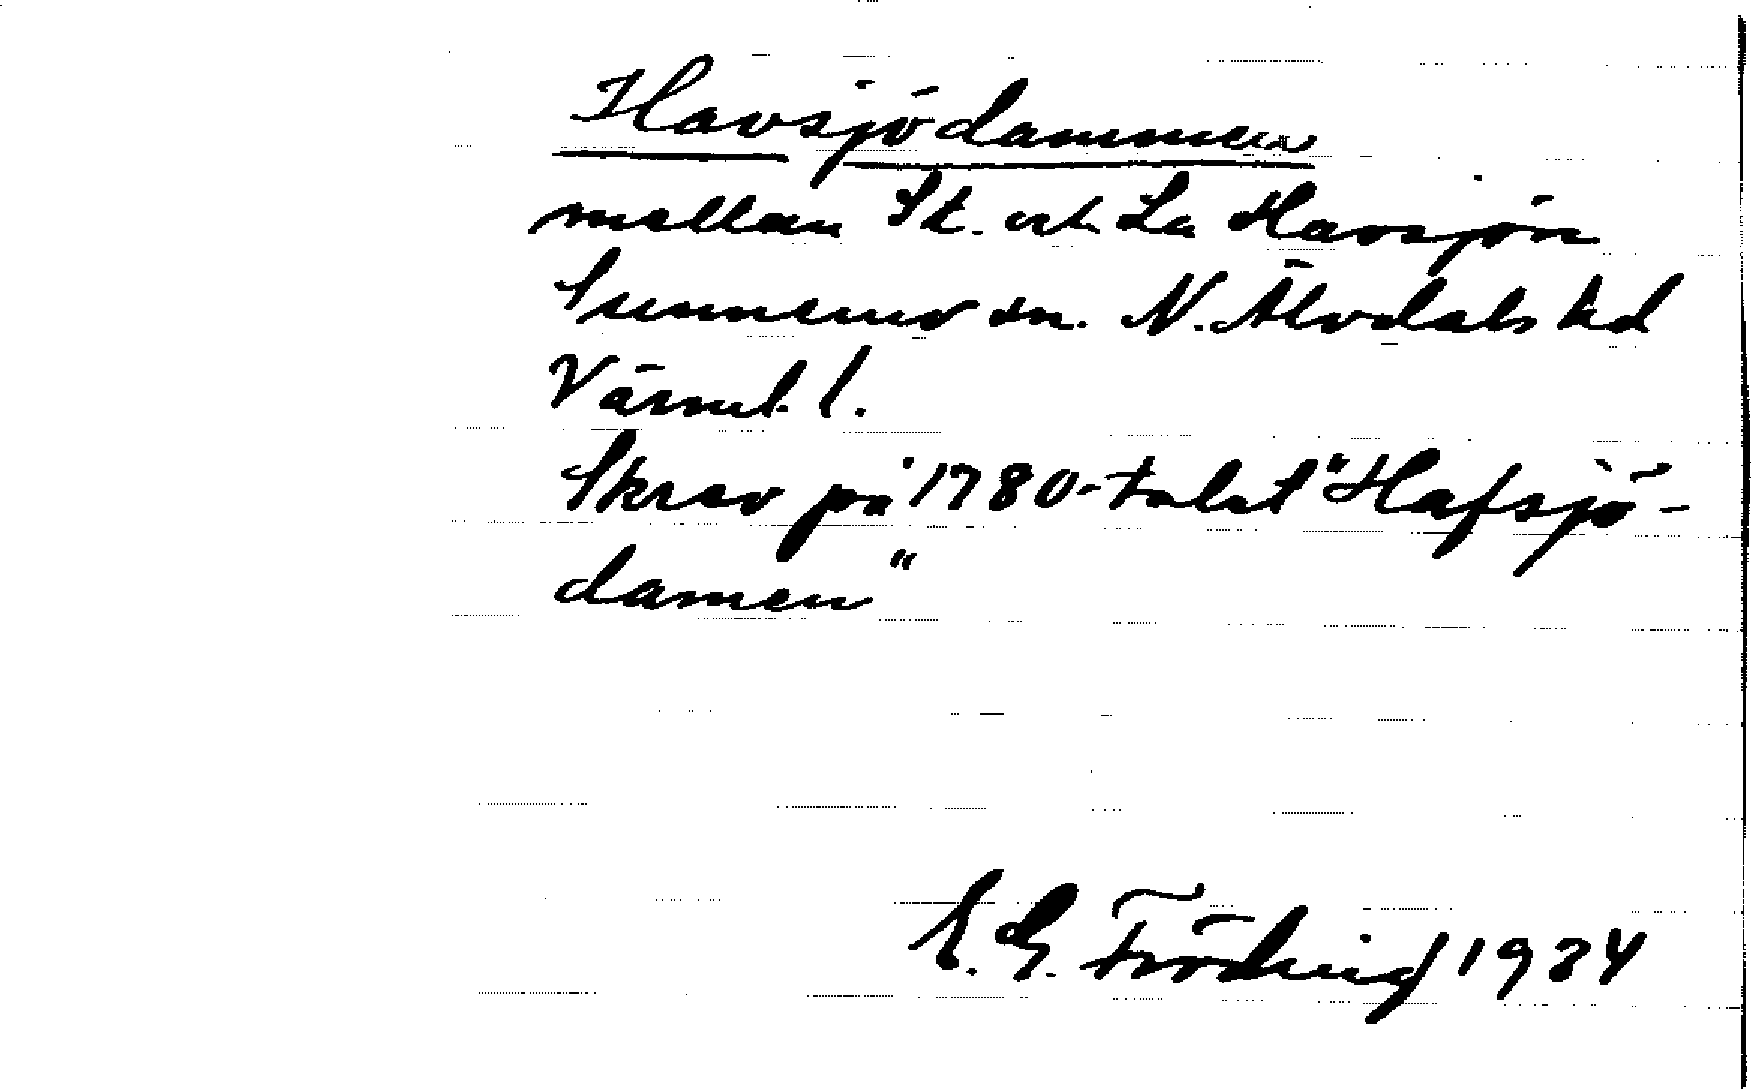 Havsjödammen
mellan St. och La Havsjön
Sunnemo sn. N. Älvdals hd
Värml. l.
Skrev på 1780-talet "Hafsjö-
damen"
E. G. Fröding 1934